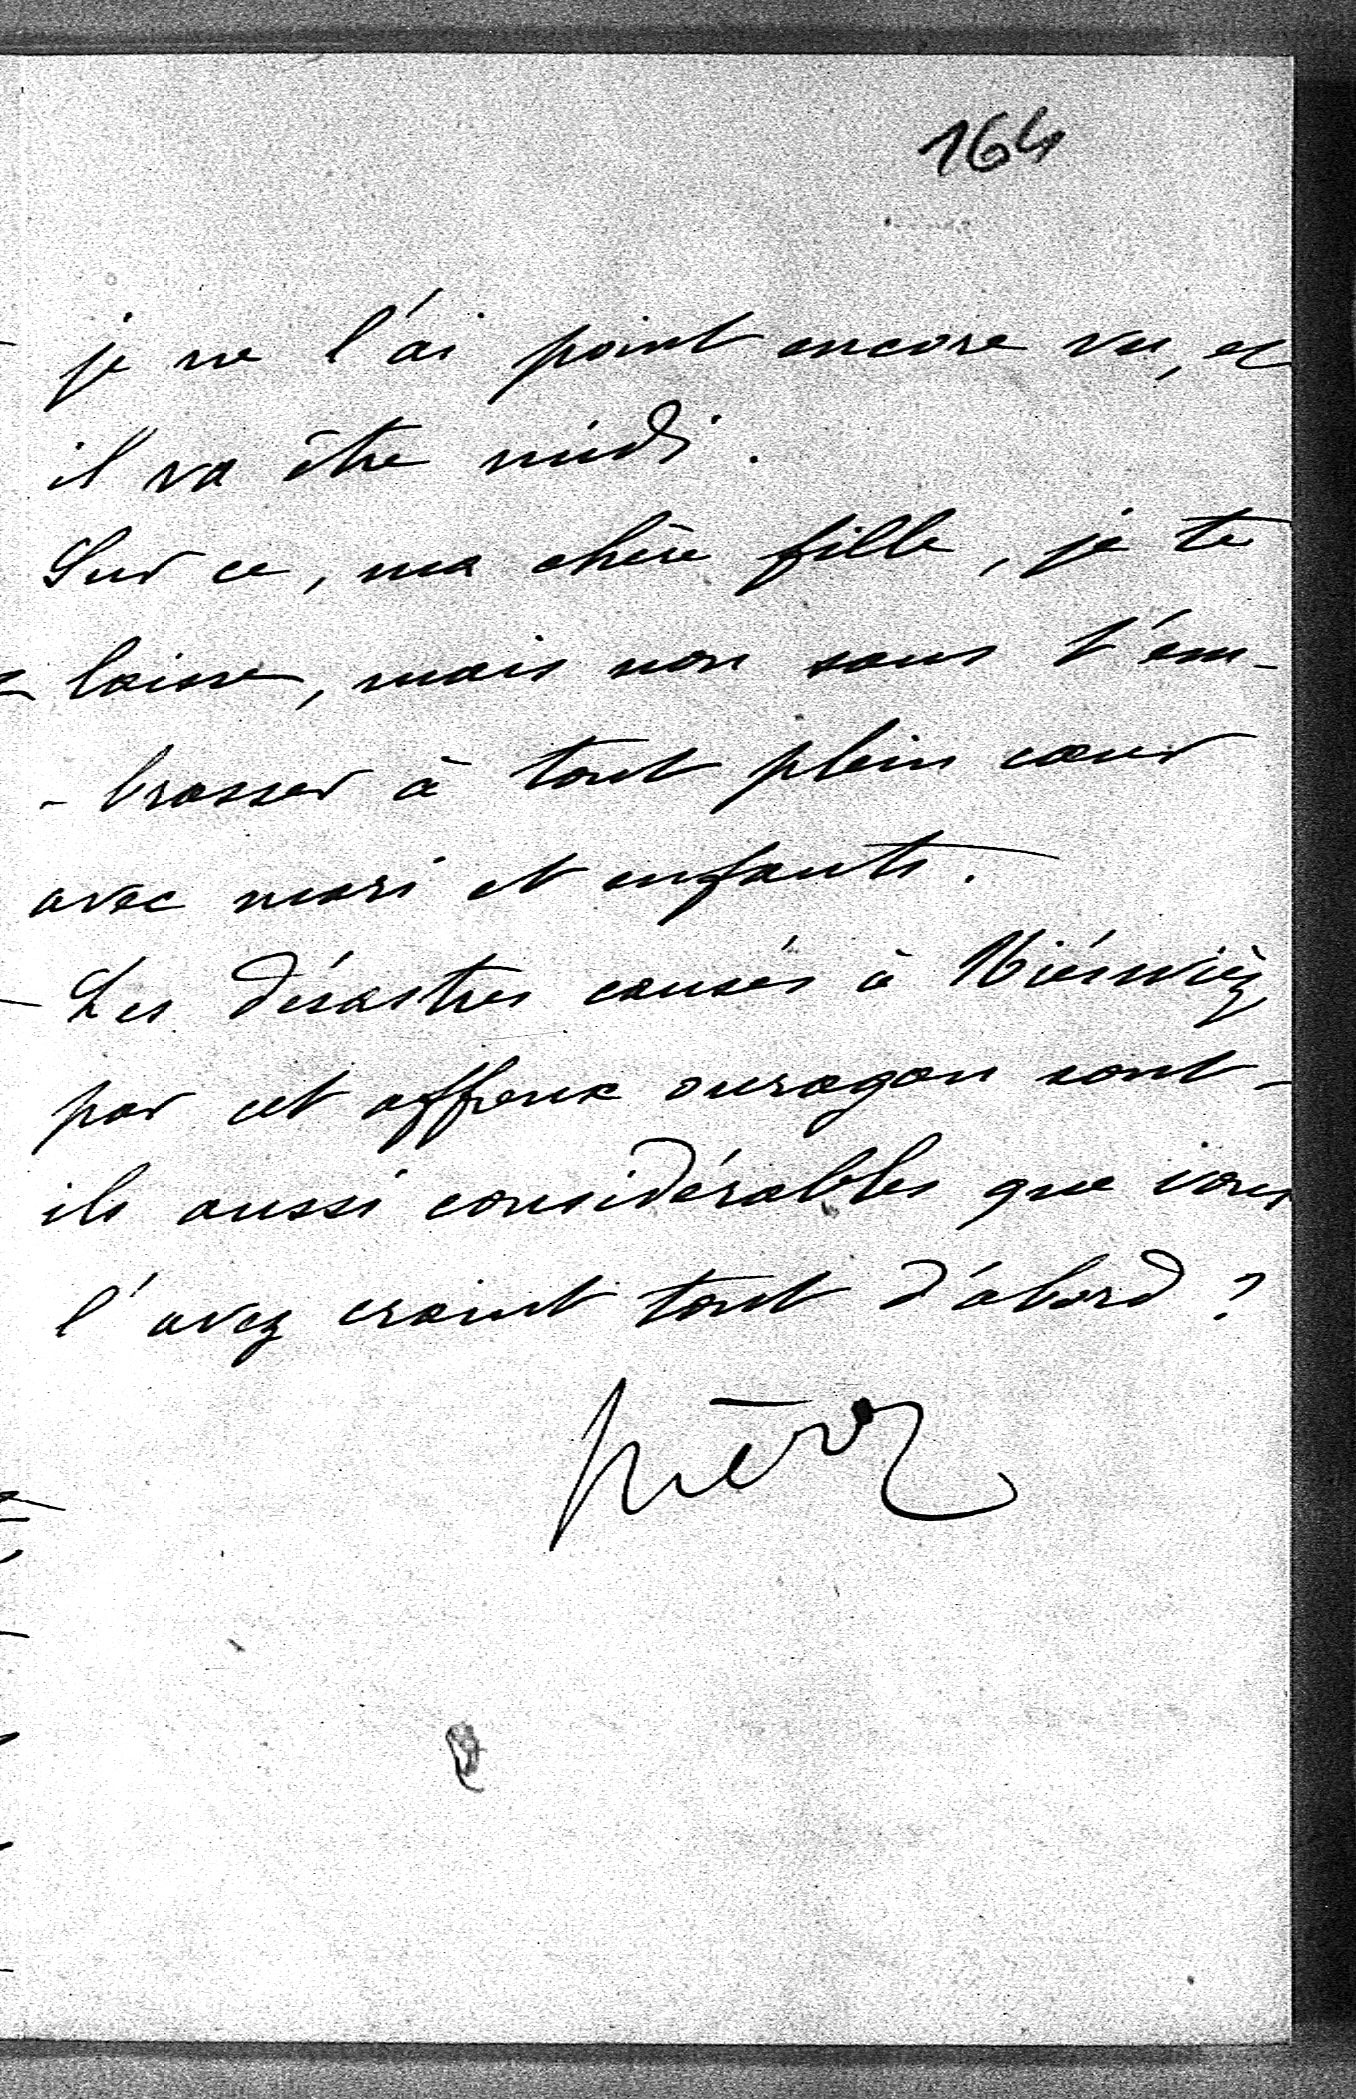 164
je ne l'ai point encore vu, et
il va être midi.
Sur ce, ma chère fille, je te
laisse, mais non sans t'em-
- brasser à tout plein cœur
avec mari et enfants.
Les désastres causés à Niéswièz
par cet affreux ouragan sont-
ils aussi considérables que vous
l'avez craint tout d'abord ?